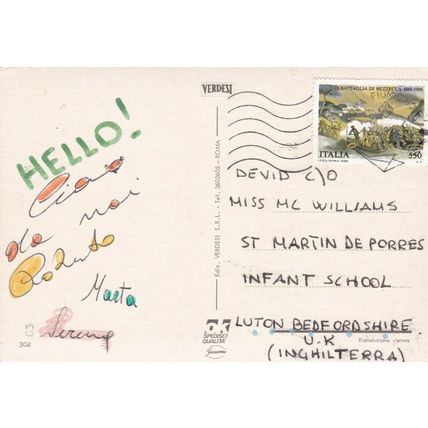 VERDESI
BATTAGLIA DI BEZZECCA 1866-1986
ITALIA 550
HELLO!
Ciao
da noi
Roberto
Marta
Serena
302
Ediz. VERDESI S.R.L. - Tel. 3602605 - ROMA
OK
SPEDISCI
QUALITÀ
DEVID C/O
MISS MC WILLIAMS
ST MARTIN DE PORRES
INFANT SCHOOL
LUTON BEDFORDSHIRE
U.K
(INGHILTERRA)
Riproduzione vietata